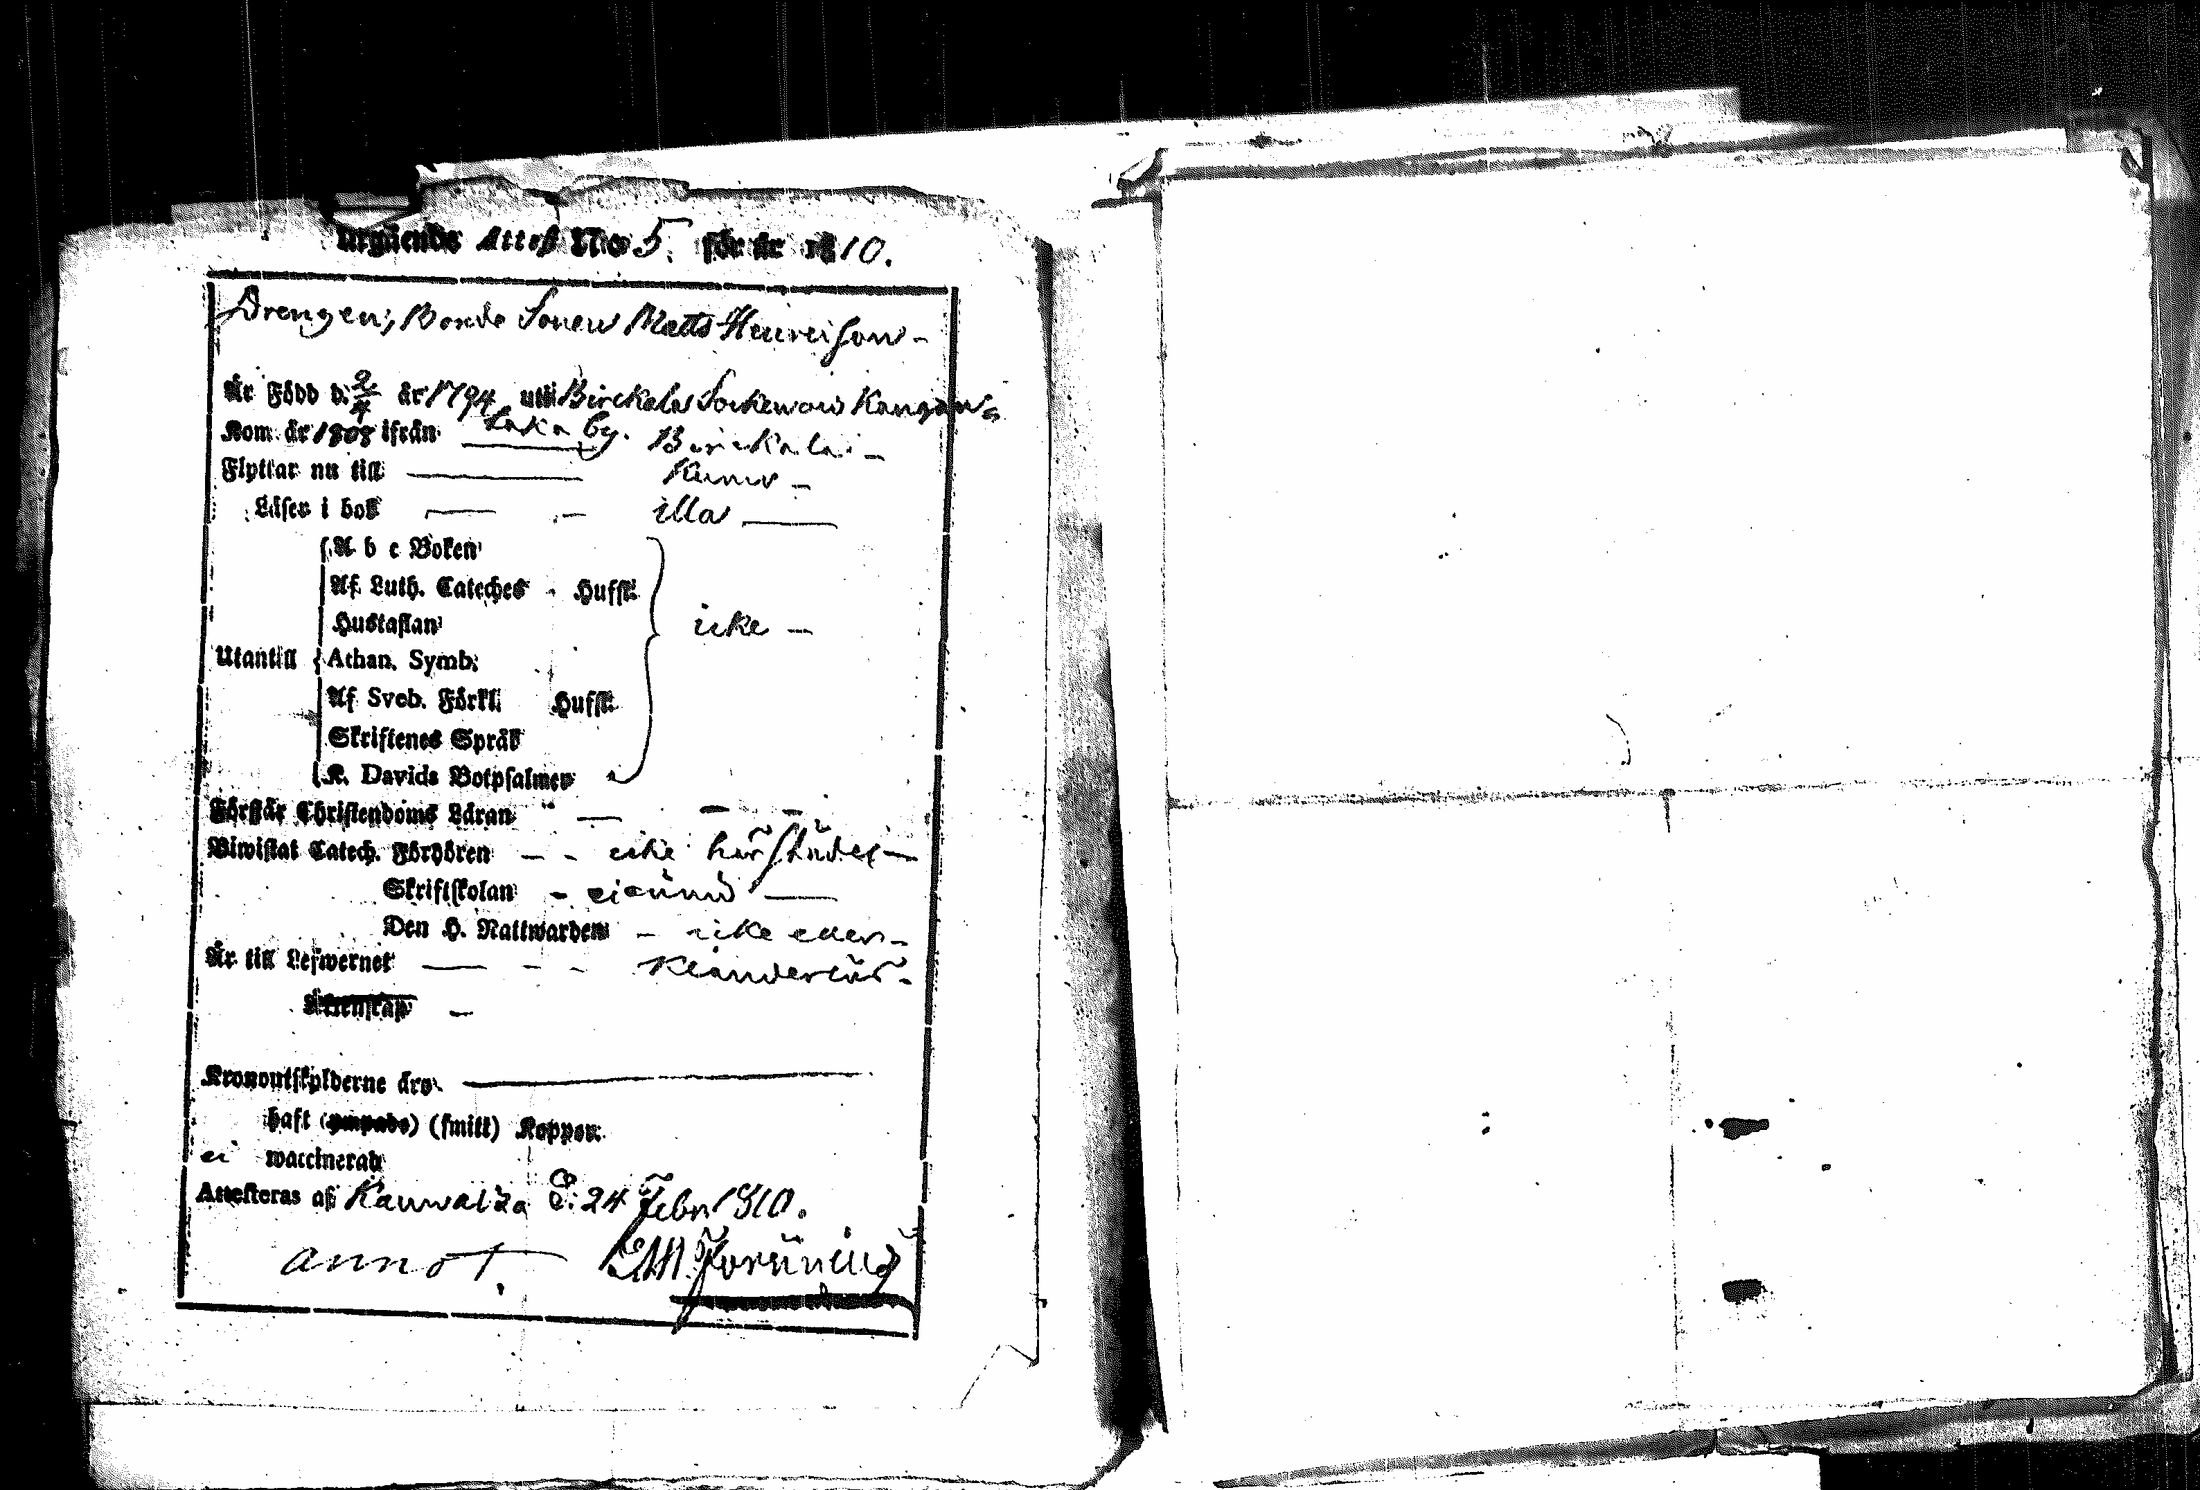 Utgående Attest No 5. för år 1810.
Drengen, Bonde Sonen Matts Henricsson -
Är Född d. 2/4 år 1794 uti Birckala Socken och Kangas=
Kom år 1808 ifrån laka by. Birckala -
Flyttar nu till Kumo -
Läser i bok illa
A b c Boken
Af Luth. Cateches - Hufst.
Hustaflan icke -
Utantill Athan. Symb.
Af Sveb. Förkl. Hufst.
Skriftenes Språk
K. Davids Botpsalmer
Förstår Christendoms Läran - -
Biwistat Catech. Förhören - - icke härstädes -
Skriftskolan - ei ännu
Den H. Nattwarden - icke eller -
Är till Lefwernet - - klanderlös -
Äktenskap -
Kronoutskylderne äro
haft (ympade) (smitt) Koppor.
ei waccinerad
Attesteras af Kauwatza d. 24 Febr 1810.
annot.